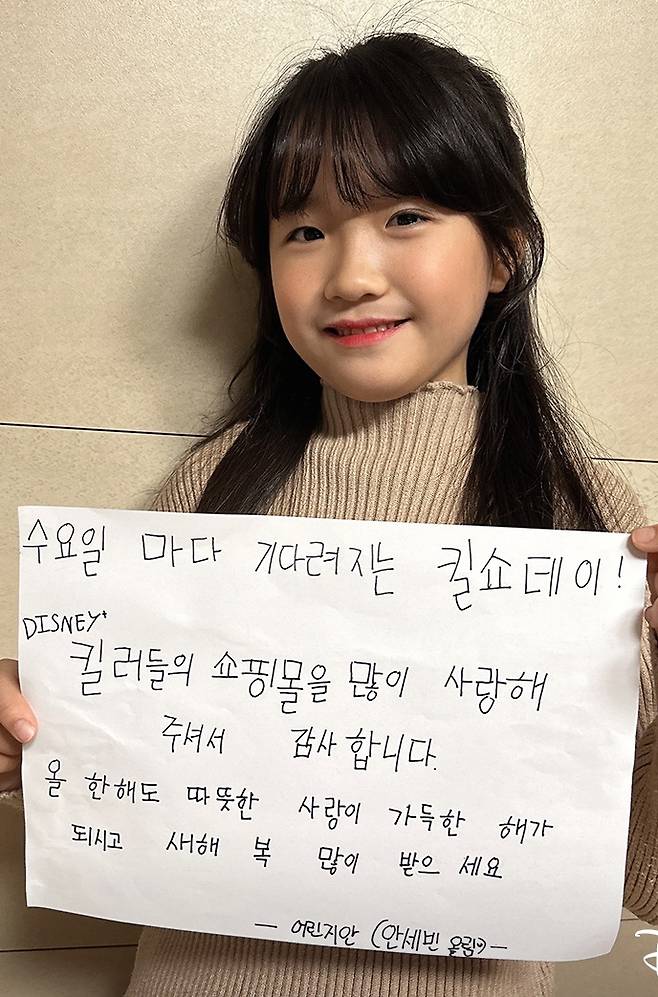 수요일 마다 기다려지는 킬쇼데이!
DISNEY+
킬러들의 쇼핑몰을 많이 사랑해
주셔서 감사합니다.
올 한해도 따뜻한 사랑이 가득한 해가
되시고 새해 복 많이 받으세요
— 어린지안 (안세빈 올림) —